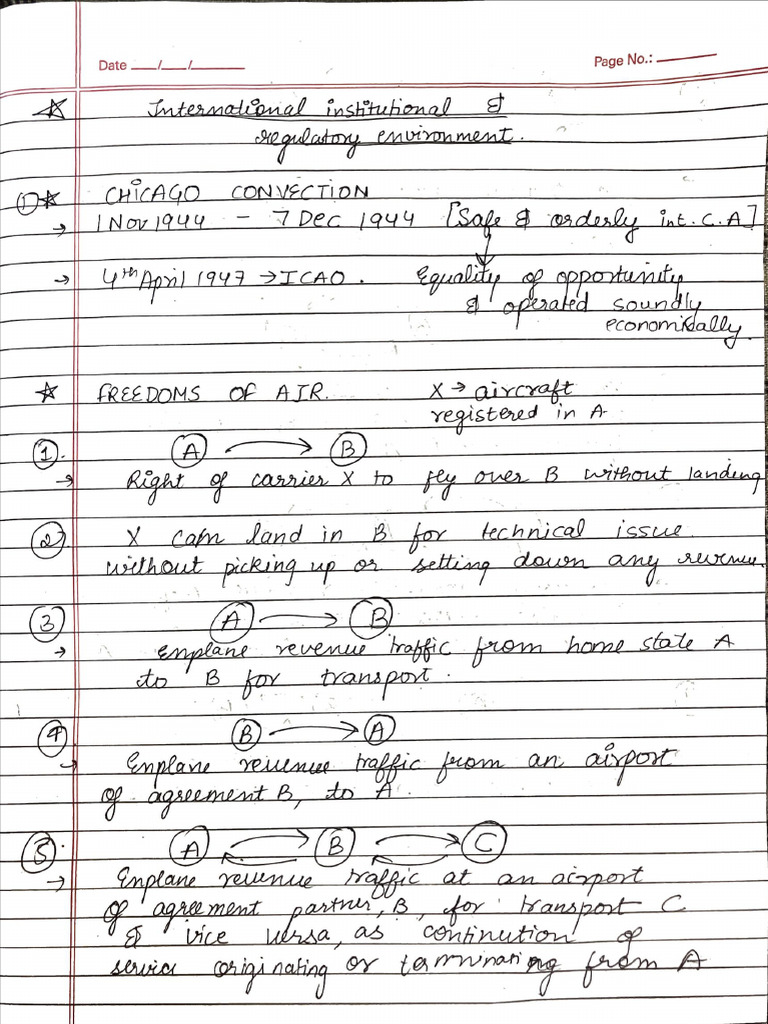 Date __/__/____ Page No.: ____
☆ International institutional &
regulatory environment.
① ☆ CHICAGO CONVECTION
→ 1 Nov 1944 - 7 Dec 1944 [Safe & orderly int. C.A]
→ 4th April 1947 → ICAO. Equality of opportunity
& operated soundly
economically.
☆ FREEDOMS OF AIR. X → aircraft
registered in A
① A → B
→ Right of carrier X to fly over B without landing
② X can land in B for technical issue
without picking up or setting down any revenue.
③ A → B
→ Enplane revenue traffic from home state A
to B for transport.
④ B → A
→ Enplane revenue traffic from an airport
of agreement B, to A.
⑤ A ⇄ B ⇄ C
→ Enplane revenue traffic at an airport
of agreement partner, B, for transport C
& vice versa, as continution of
service originating or terminating from A